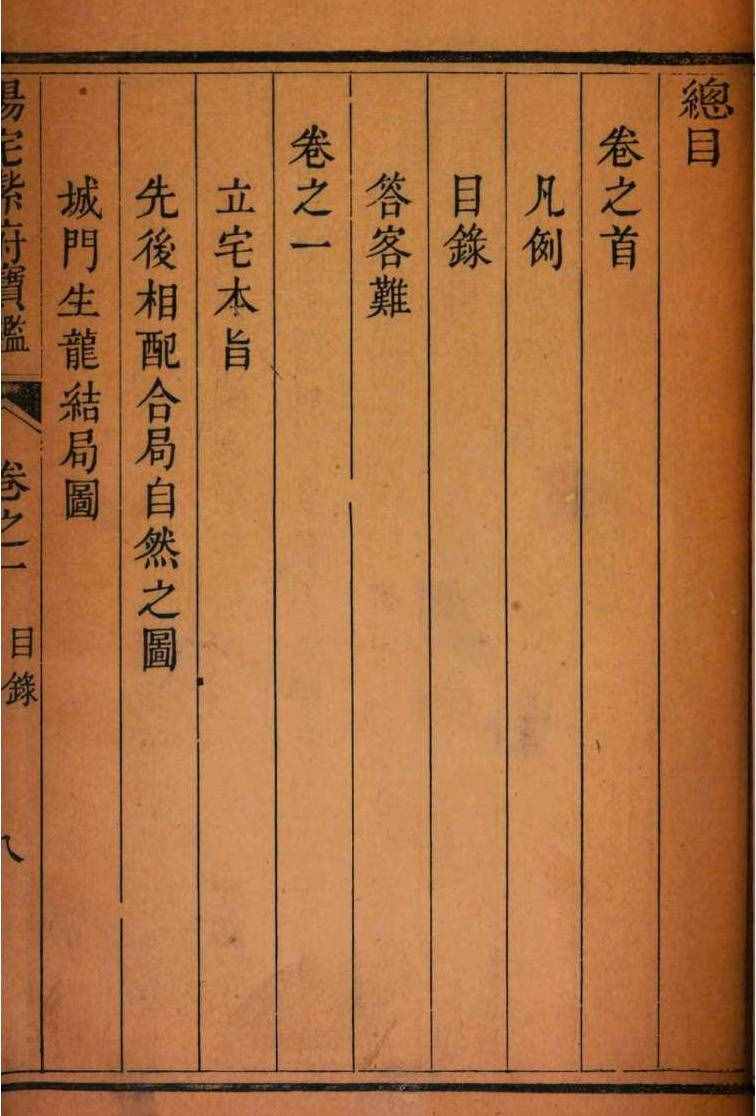 總目
卷之首
凡例
目錄
答客難
卷之一
立宅本旨
先後相配合局自然之圖
城門生龍結局圖
陽宅紫府寶鑑
卷之一
目錄
八